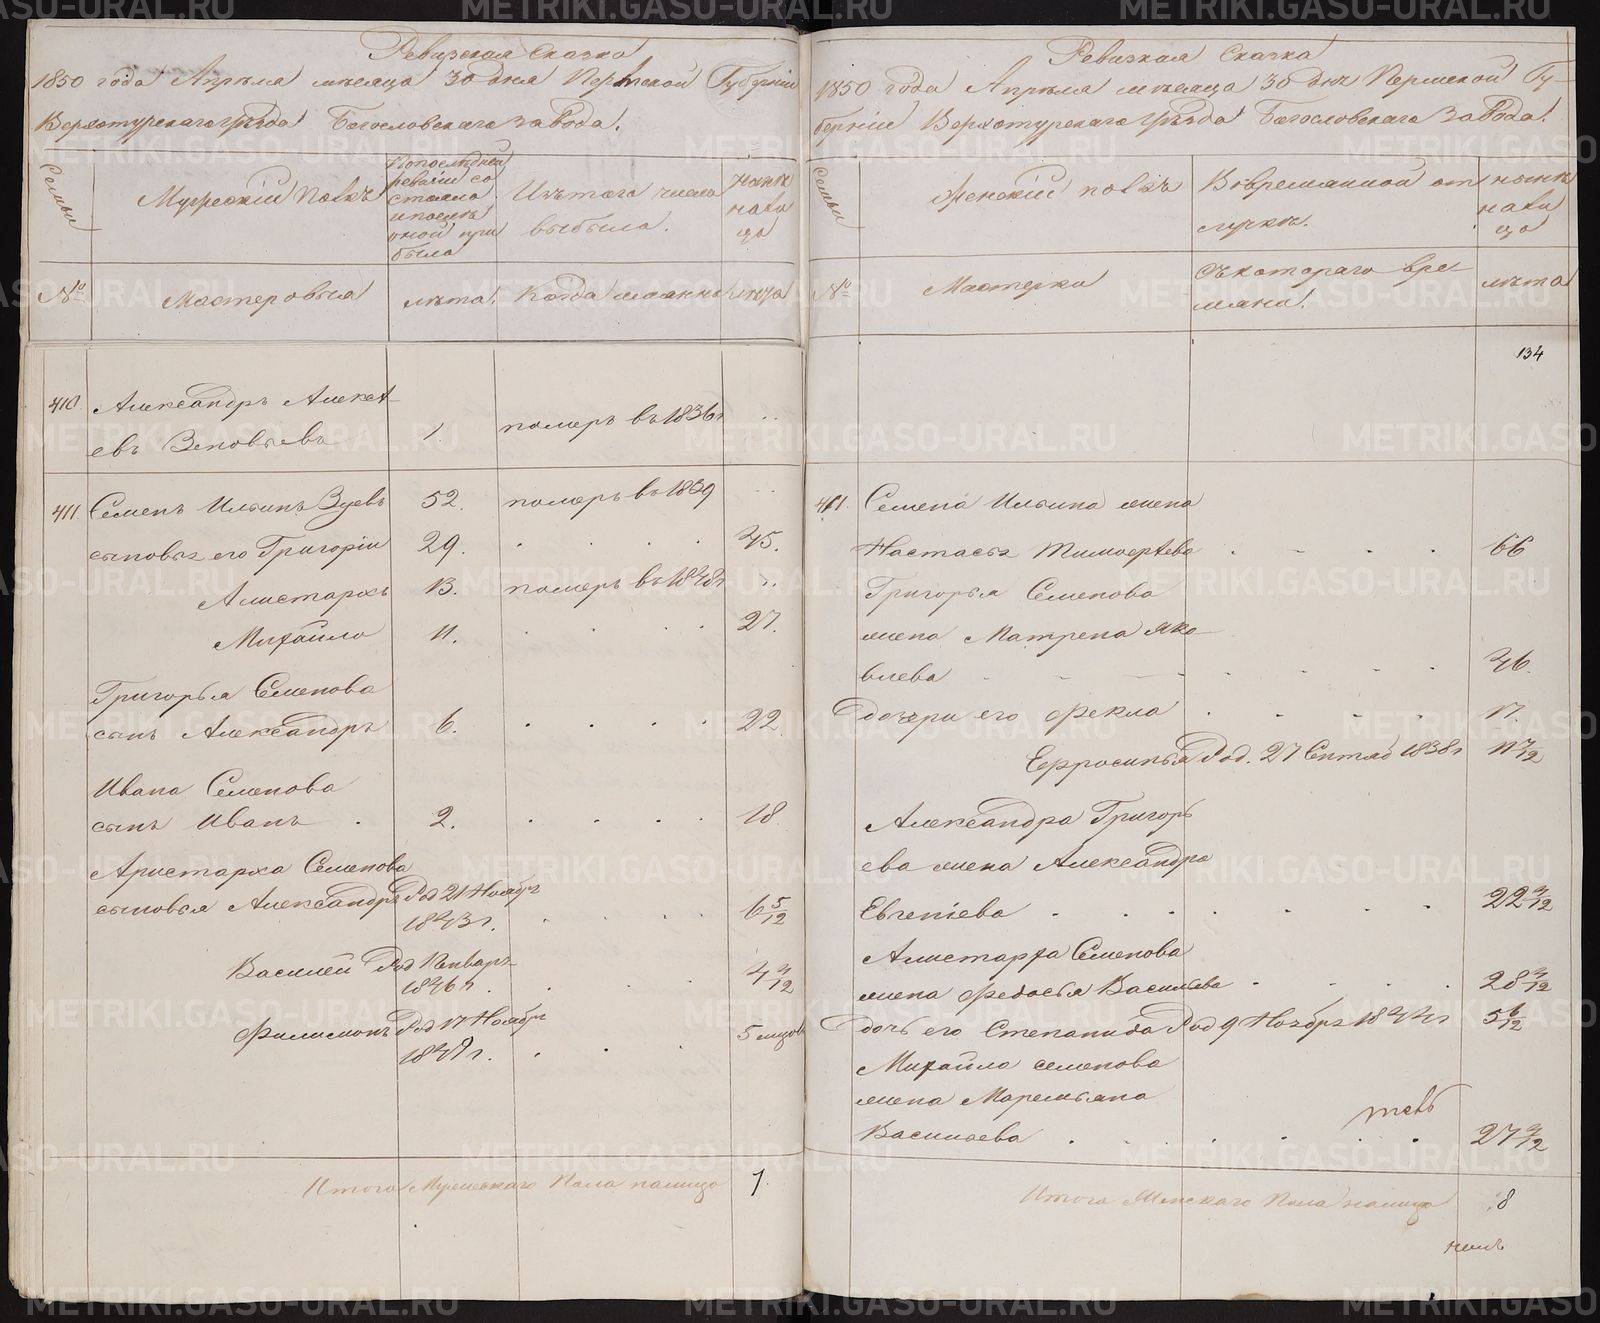 Ревизская Сказка
1850 года Апреля месяца 30 дня Пермской Губернии
Верхотурскаго Уѣзда Богословскаго завода.
Семьи
Мужеский Полъ
По последней
ревизии со
стояло
и после
оной при
было
Изъ того числа
выбыло.
Ныне
на ли
цо
№
Мастеровыя
лѣта.
Когда именно
лица
410
Александръ Алексѣ-
евъ Зиновьевъ
1.
померъ въ 1836 г
411.
Семенъ Ильинъ Зуевъ
52.
померъ въ 1839
сыновья его Григорiи
29.
45.
Алистархъ
13.
померъ въ 1848 г
Михайло
11.
27.
Григорья Семенова
сынъ Александръ
6.
22.
Ивана Семенова
сынъ Иванъ
2.
18
Аристарха Семенова
сыновья Александръ Род 21 Ноябръ
1843 г.
6 5/12
Василей Род Январъ
1846 г.
4 3/12
Филимонъ Род 17 Ноябръ
5 мцовъ
Итого Мужескаго Пола налицо
7
Ревизкая Сказка
1850 года Апреля месяца 30 дня Пермской Гу-
бернiи Верхотурскаго Уѣзда Богословскаго завода.
Семьи
Женскiй полъ
Во временной от
лучке.
ныне
на ли
цо
№
Мастерки
Съ котораго вре
мяни.
лѣта
134
411.
Семена Ильина жена
Настасья Тимофѣева
66
Григорья Семенова
жена Матрена Яко-
влева
46.
дочери его Фекла
17.
Ефросинья Род. 27 Сентяб 1838 г
11 7/12
Александра Григорь
ева жена Александра
Евгенiева
22 3/12
Алистарха Семенова
жена Федосья Васильева
28 3/12
дочь его Степанида Род 9 Ноябръ 1844 г
5 6/12
Михайло семенова
жена Маремьяна
Васильева
27 3/12
Итого Женскаго Пола налицо
8